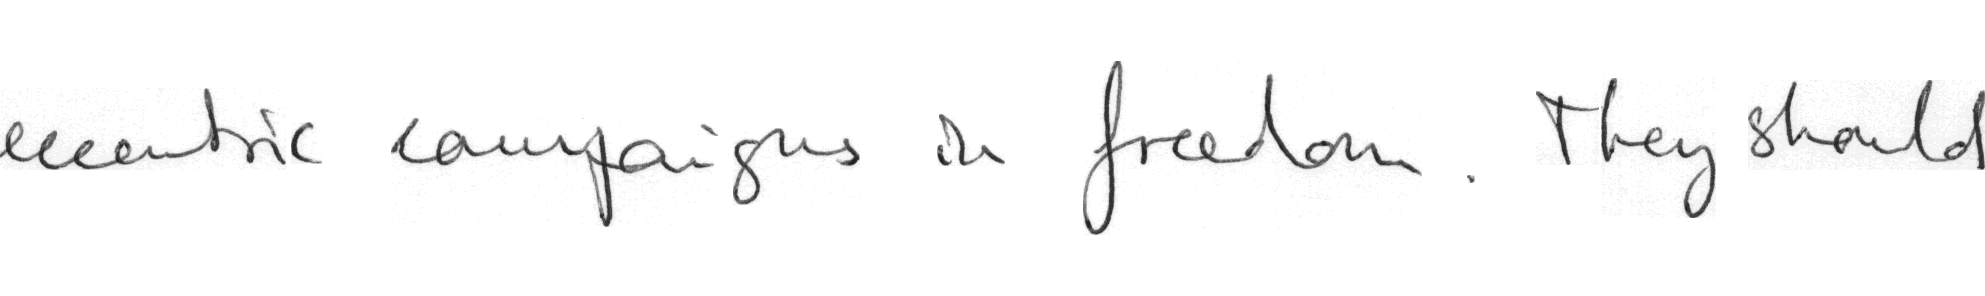 eccentric campaigns in freedom. They should